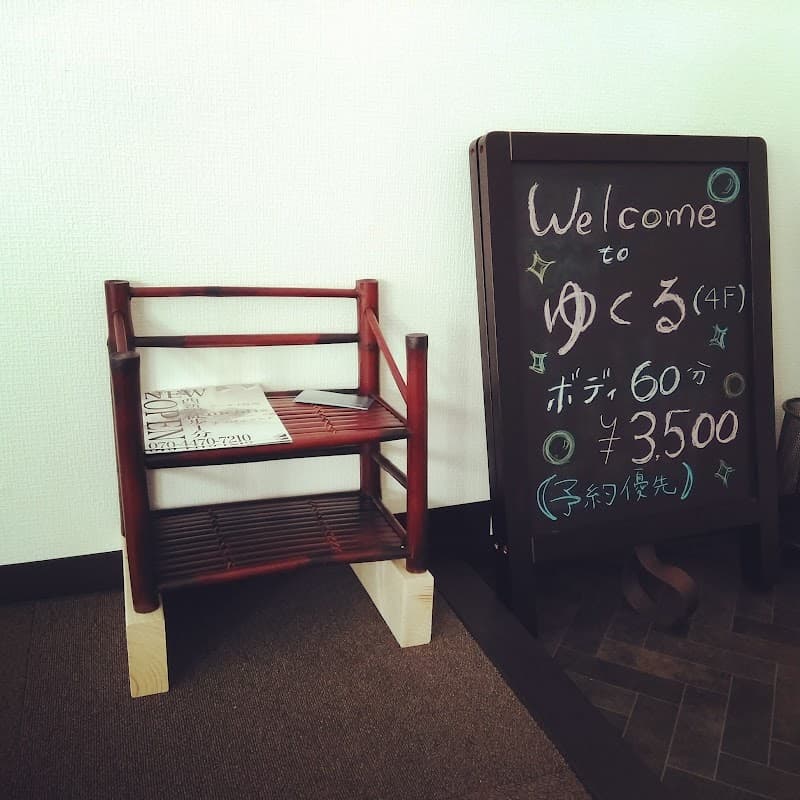 Welcome
to
ゆくる(4F)
ボディ 60分
¥3,500
(予約優先)
NEW
OPEN
070-4470-7210